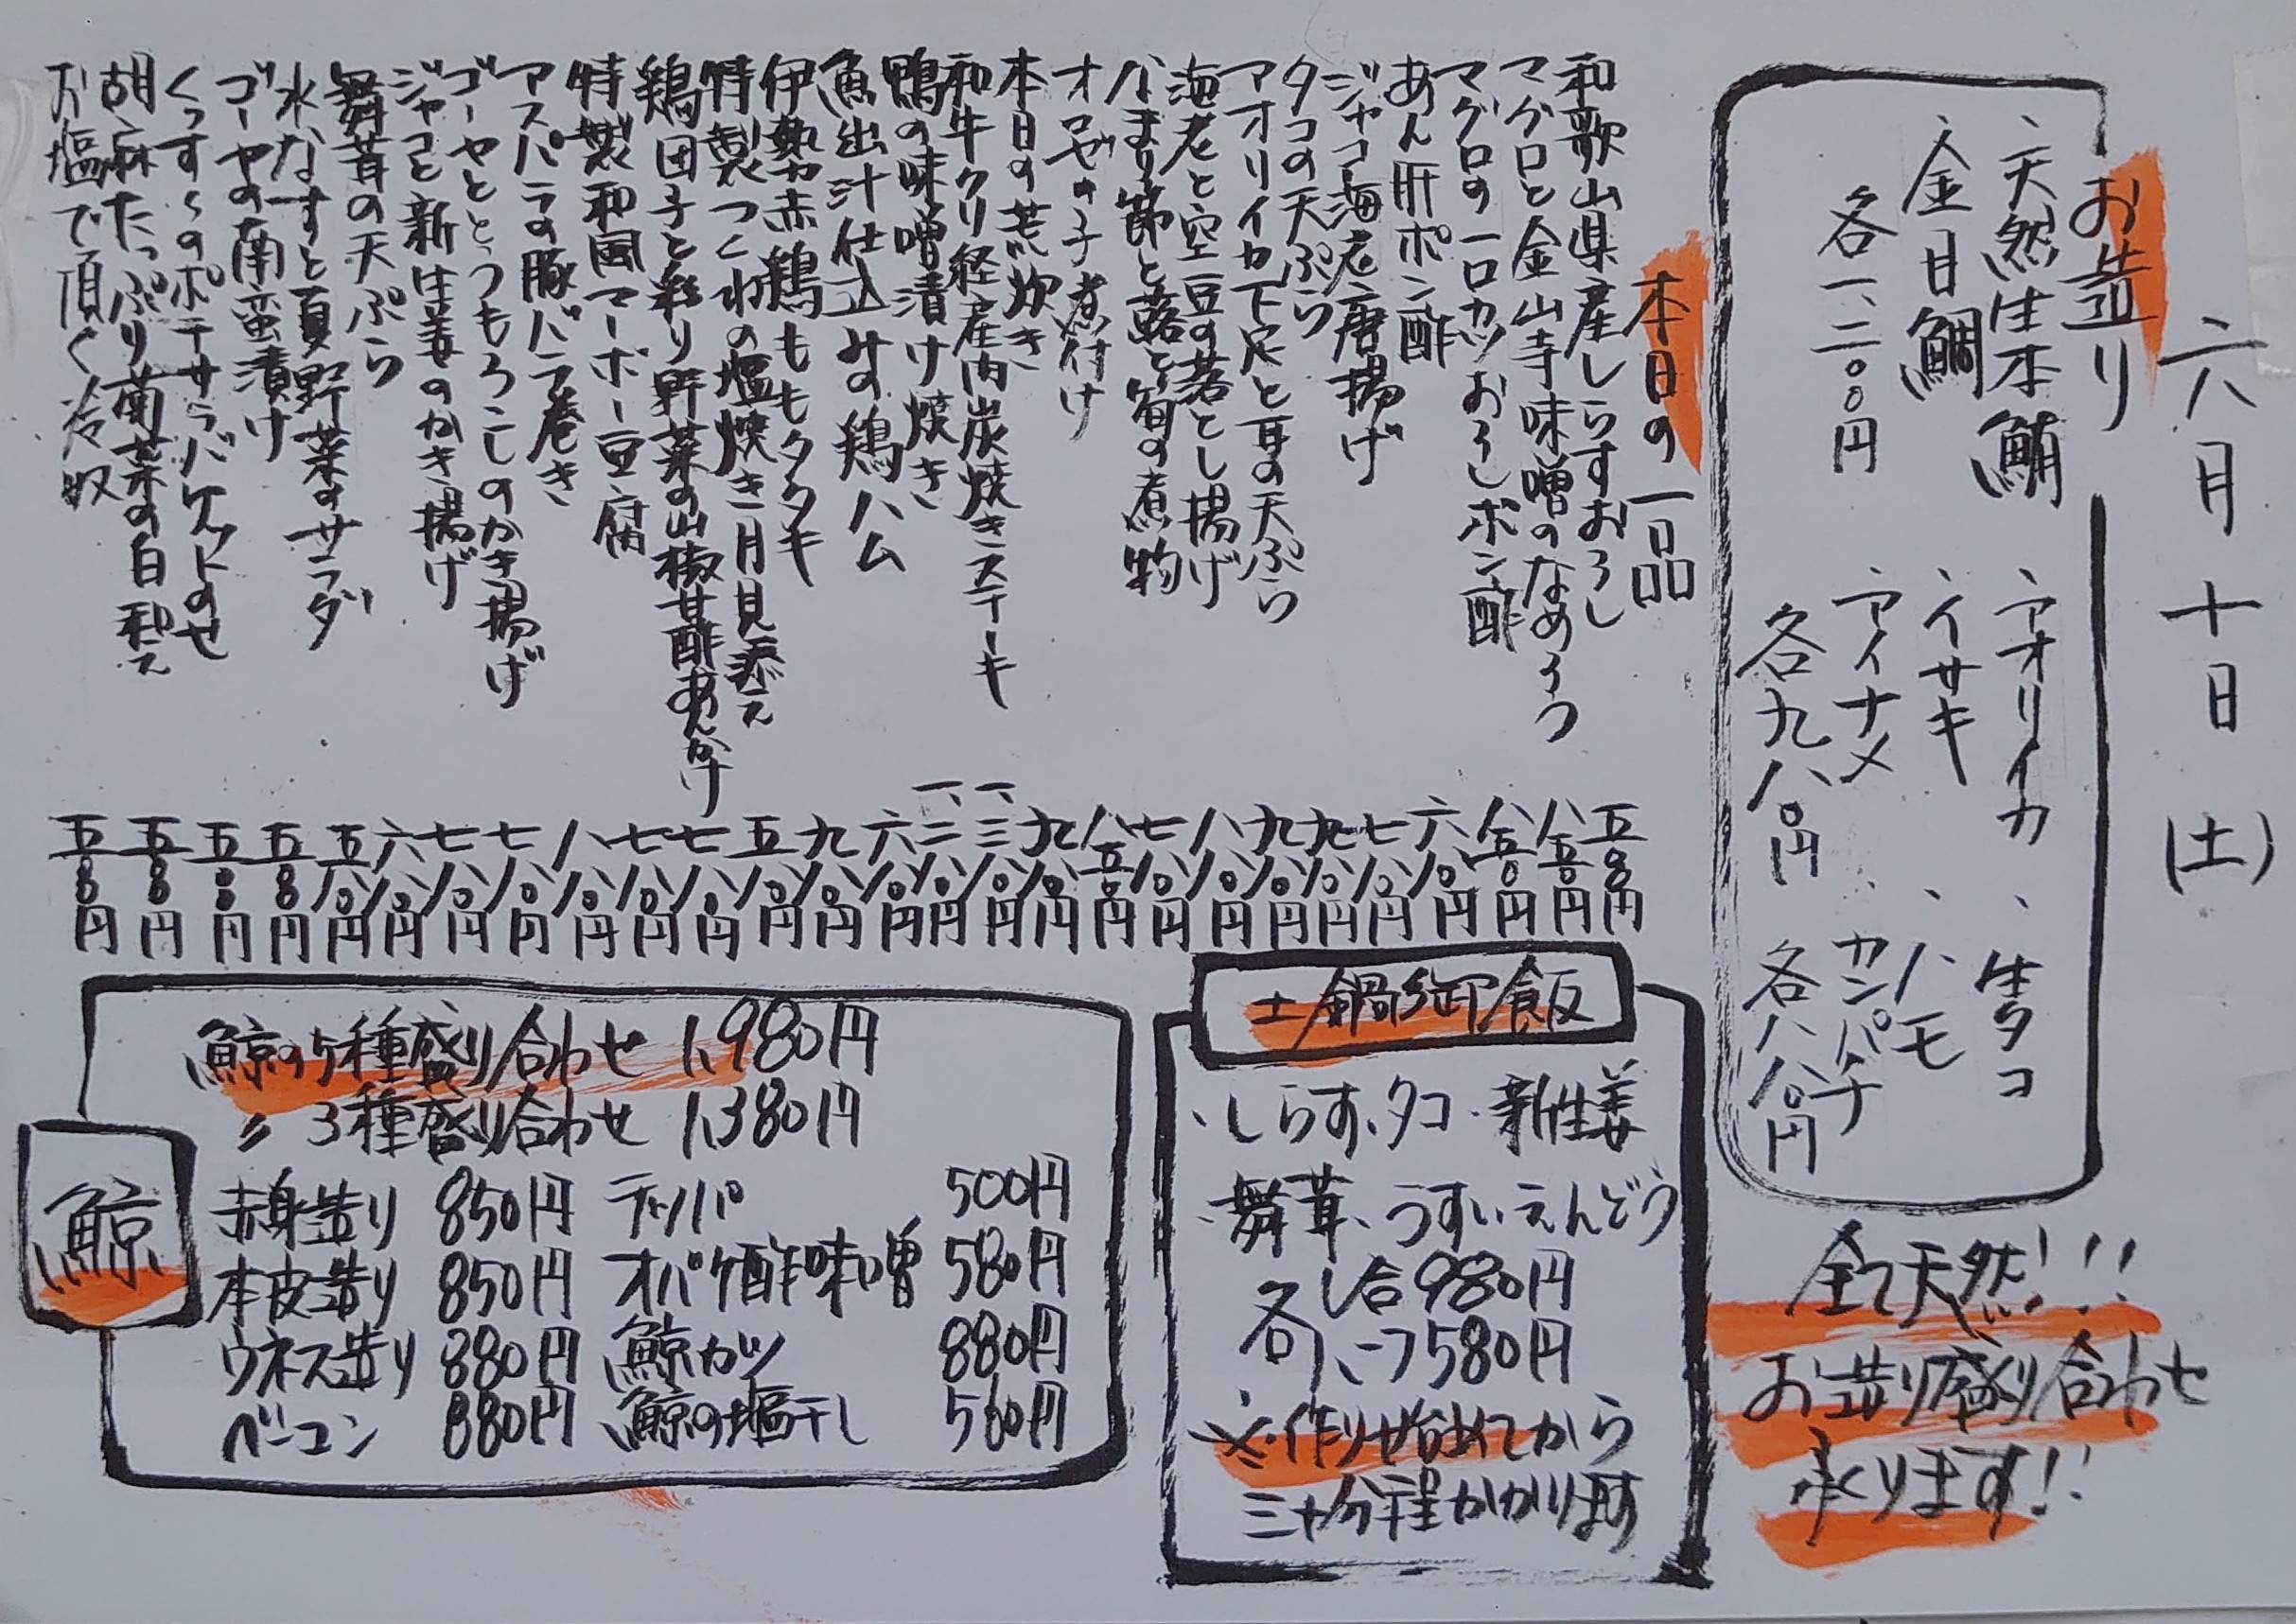 六月十日(土)
お造り
、天然生本鮪
、金目鯛
各一、二〇〇円
、アオリイカ
、イサキ
、アイナメ
各九八〇円
、生タコ
、ハモ
、カンパチ
各八八〇円
全て天然!!!
お造り盛り合わせ
承ります!!
本日の一品
和歌山県産しらすおろし 五八〇円
マグロと金山寺味噌のなめろう 八五〇円
マグロの一口カツおろしポン酢 八五〇円
あん肝ポン酢 六八〇円
ジャコ海老唐揚げ 七八〇円
タコの天ぷら 九八〇円
アオリイカ下足と耳の天ぷら 九八〇円
海老と空豆の落とし揚げ 八八〇円
なまり節と蕗と筍の煮物 七八〇円
オコゼの子煮付け 八五〇円
本日の荒炊き 九八〇円
和牛クリ経産肉炭焼きステーキ 一、三八〇円
鴨の味噌漬け焼き 一、二八〇円
魚出汁仕込みの鶏ハム 六八〇円
伊勢赤鶏ももタタキ 九八〇円
特製つくねの塩焼き月見添え 五八〇円
鶏団子と彩り野菜の山椒甘酢あんかけ 七八〇円
特製和風マーボー豆腐 七八〇円
アスパラの豚バラ巻き 八八〇円
ゴーヤととうもろこしのかき揚げ 七八〇円
ジャコと新生姜のかき揚げ 七八〇円
舞茸の天ぷら 六八〇円
水なすと夏野菜のサラダ 五八〇円
ゴーヤの南蛮漬け 五八〇円
くっす〜のポテサラバケットのせ 五八〇円
胡麻たっぷり菊菜の白和え 五八〇円
お塩で頂く冷奴 五八〇円
土鍋御飯
、しらす、タコ、新生姜
、舞茸、うすいえんどう
各一合980円
※作り始めてから
三十分程かかります
鯨
鯨の5種盛り合わせ 1,980円
〃 3種盛り合わせ 1,380円
赤身造り 850円 テッパ 500円
本皮造り 850円 オバケ酢味噌 580円
ウネス造り 880円 鯨カツ 880円
ベーコン 880円 鯨の塩干し 560円